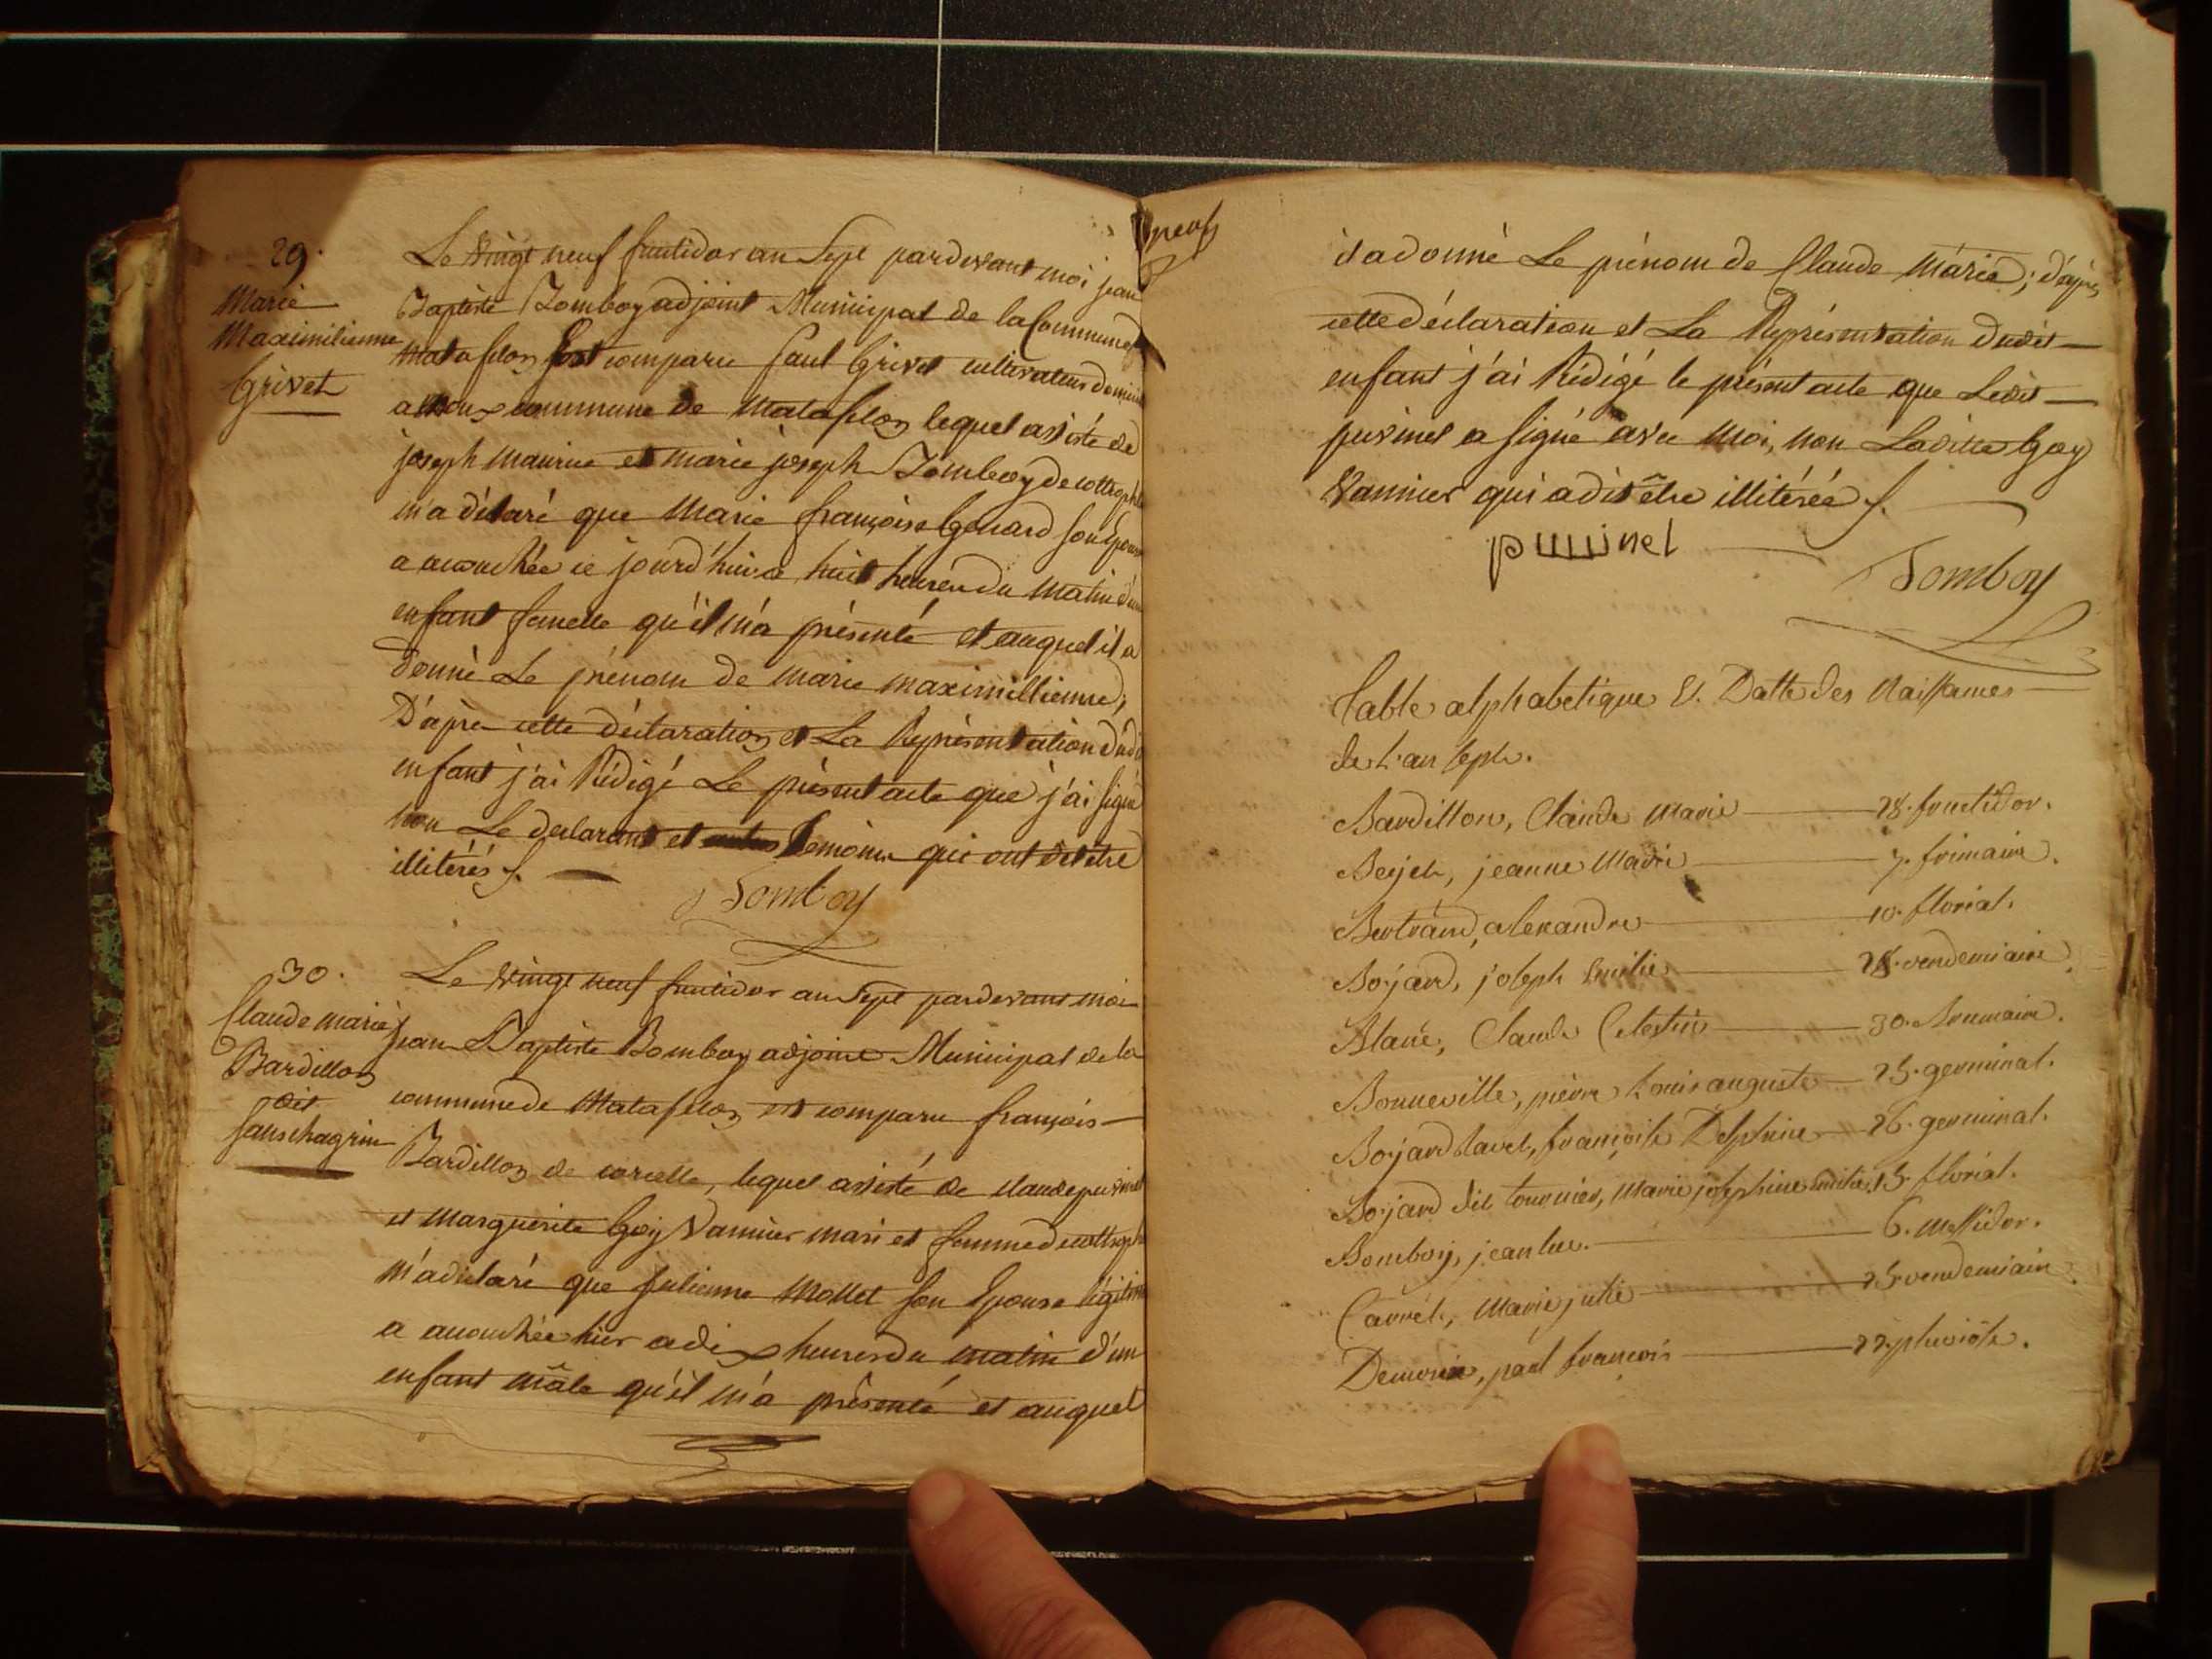 29.
Marie
Maximilienne
Grivet
Le vingt neuf fructidor an Sept pardevant moi jean
Baptiste Bomboy adjoint Municipal de la Commune de
Matafelon est comparu Paul Grivet cultivateur
a commune de Matafelon lequel assisté de
joseph maurice et marie joseph Bomboy de
m'a déclaré que Marie françoise Genard son Epouse
a accouchée ce jourd'hui a huit heures du matin d'un
enfant femelle qu'il m'a présenté et auquel il a
donné Le prénom de marie maximillienne;
D'après cette déclaration et La Représentation dudit
enfant j'ai Rédigé Le présent acte que j'ai signé
non Le declarant et temoins qui ont dit être
illitérés /.
Bomboy
30.
Claude marie
Bardillon
dit
sanschagrin
Le vingt neuf fructidor an Sept pardevant moi
jean Baptiste Bomboy adjoint Municipal de la
commune de Matafelon est comparu françois
Bardillon de corcelle, lequel assisté de claude puvinel
et marguerite Goy Vannier mari et femme de
m'a déclaré que julienne Mollet son Epouse légitime
a accouchée hier a dix heures du matin d'un
enfant mâle qu'il m'a présenté et auquel
neuf
il a donné Le prénom de Claude Marie; d'après
cette déclaration et La Représentation dudit
enfant j'ai Rédigé le présent acte que Ledit
puvinel a signé avec moi, non Ladite Goy
Vannier qui a dit être illitérée /.
puvinel
Bomboy
Table alphabetique Et Datte des Naissances
de L'an sept.
Bardillon, Claude Marie 28. fructidor.
Berjet, jeanne Marie 7. frimaire.
Bertrand, alexandre 10. floréal.
Bojard, joseph Emilie 28. vendemiaire
Blanc, Claude Celestin 30. brumaire.
Bonneville, pierre Louis auguste 25. germinal.
Bojard Ravet, françoise Delphine 26. germinal.
Bojard dit tournier, Marie josephine Emilie, 15. floréal.
Bomboy, jean luc. 6. Messidor.
Carret, Marie julie 25. vendemiaire
paul françois 22. pluviôse.